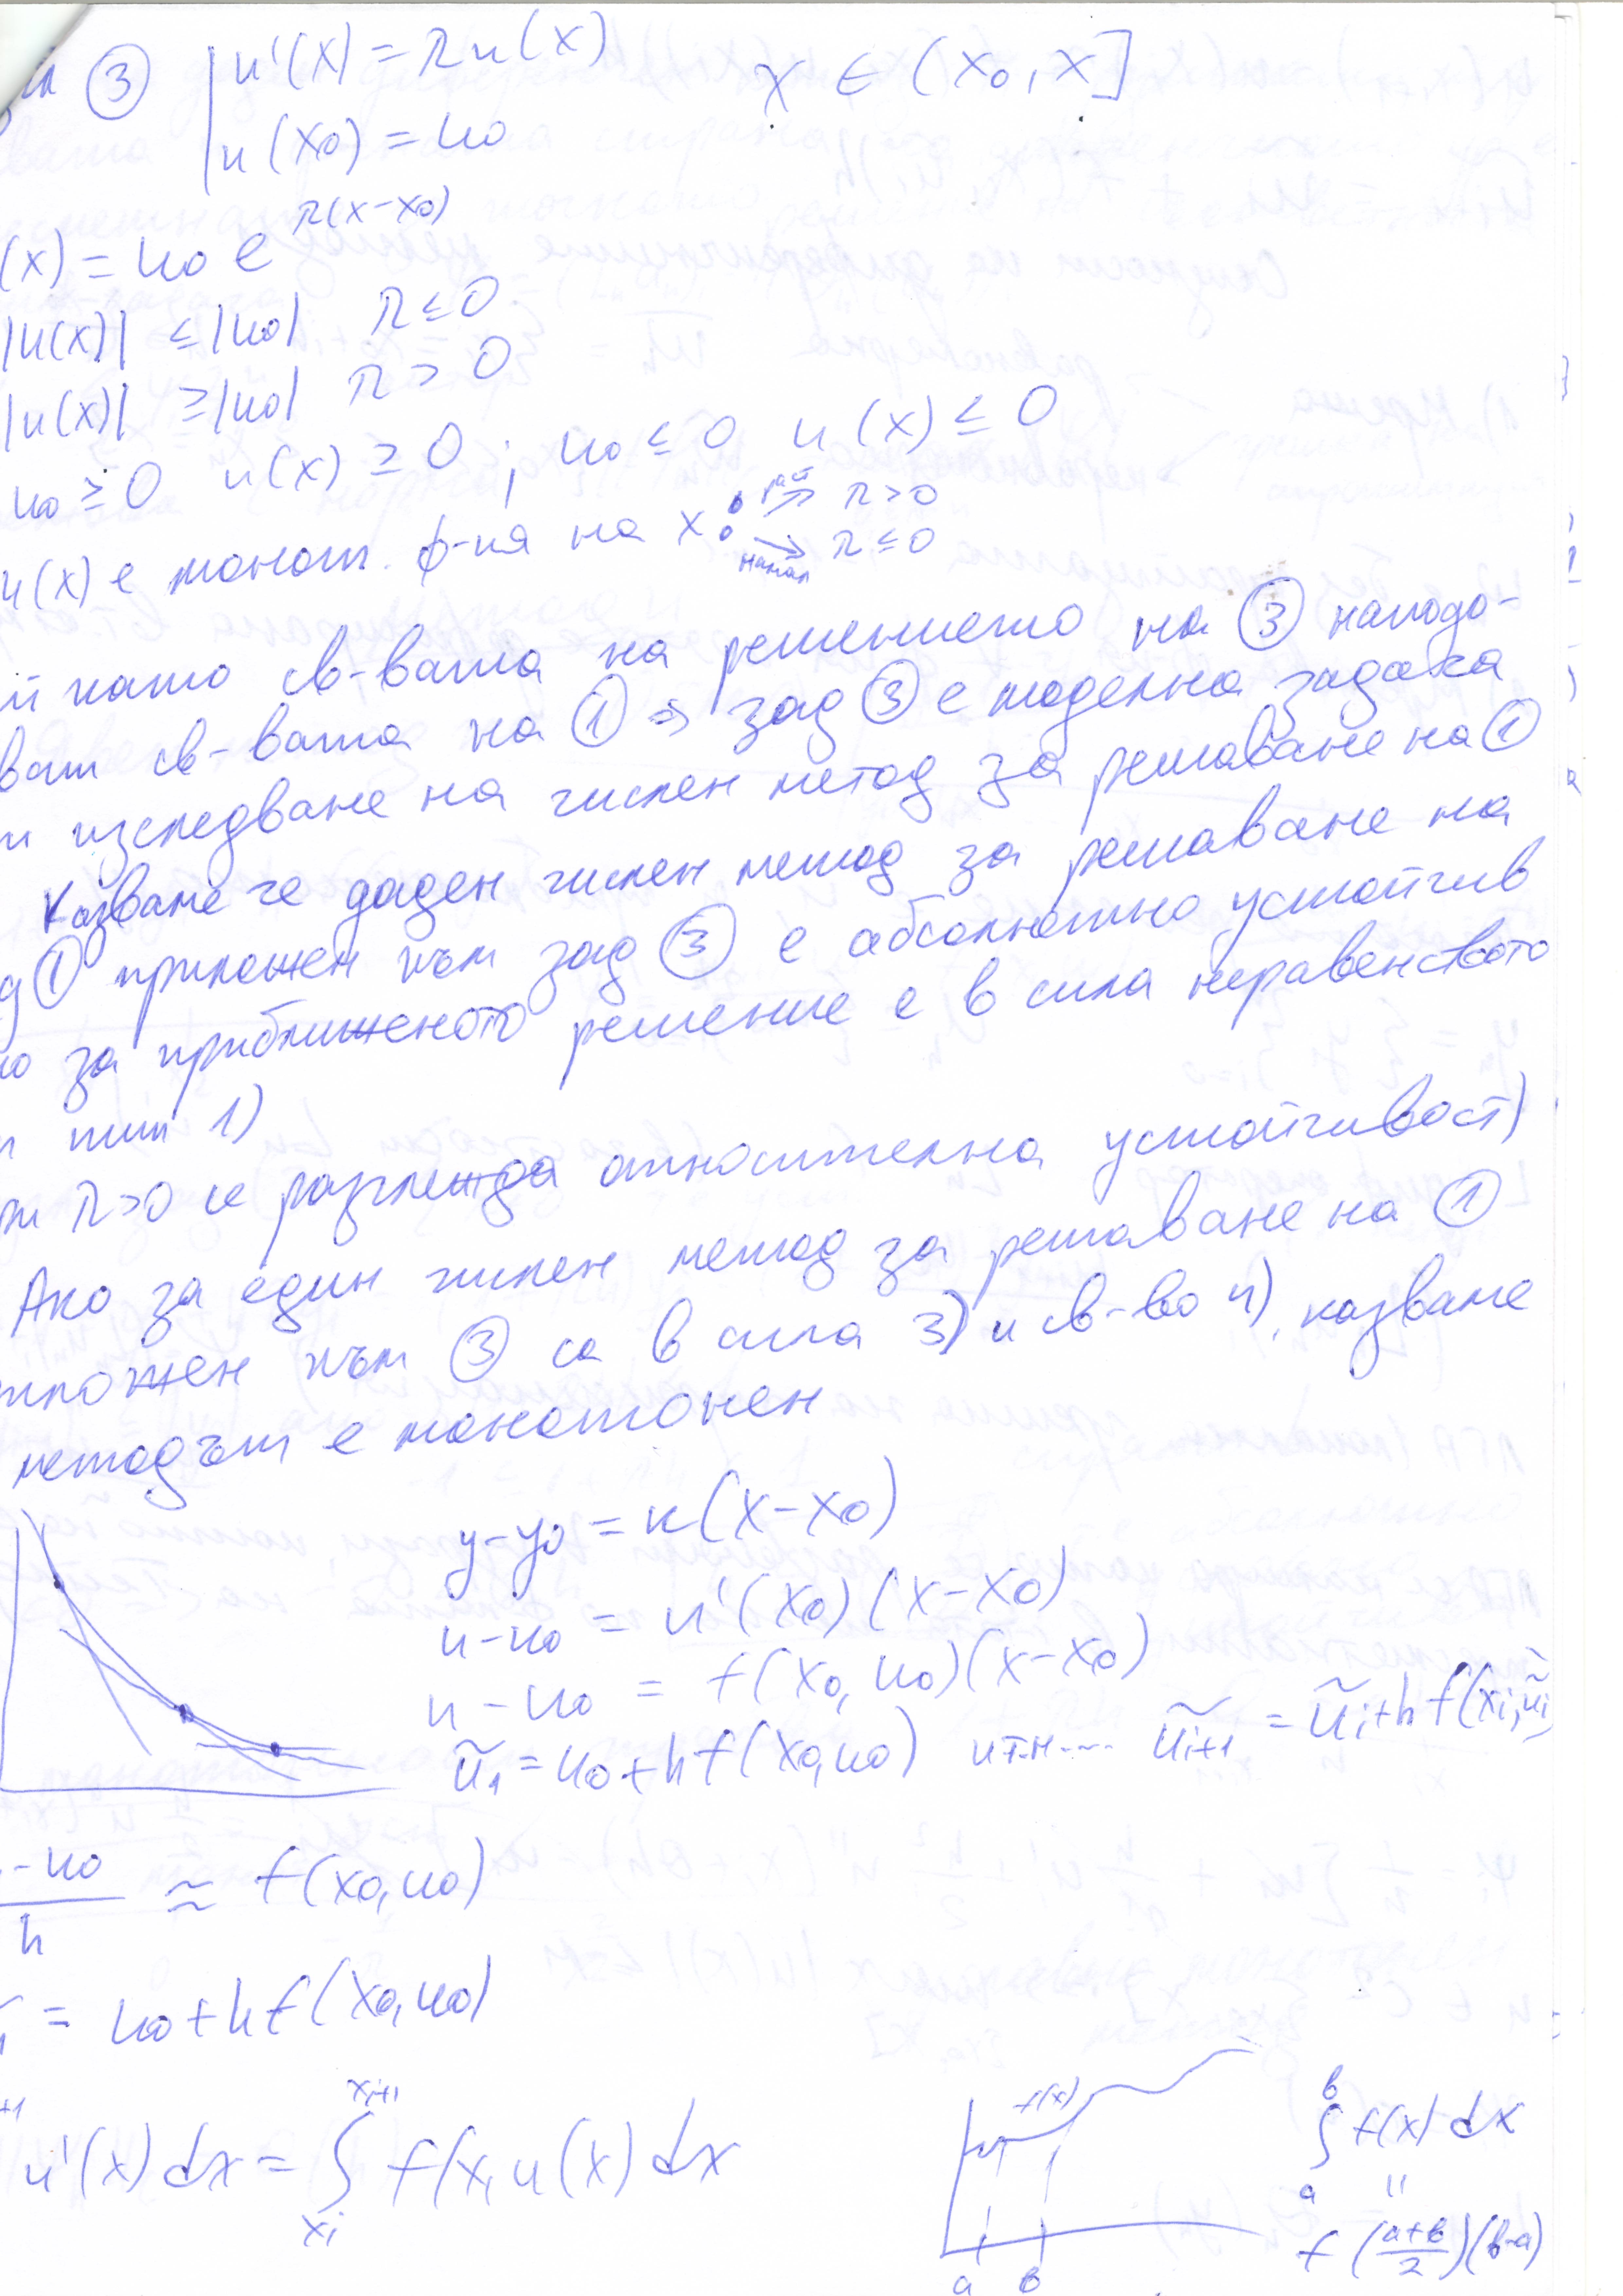 ③ | u'(x) = λu(x)   x ∈ (x₀, X]
u(x₀) = u₀
(x) = u₀ e^{λ(x-x₀)}
|u(x)| ≤ |u₀|   λ ≤ 0
|u(x)| ≥ |u₀|   λ > 0
u₀ ≥ 0   u(x) ≥ 0 ; u₀ ≤ 0   u(x) ≤ 0
u(x) е монот. ф-ия на x : раст ↗ λ > 0
намал ↘ λ ≤ 0
й като св-вата на решението на ③ наподо-
ват св-вата на ① ⇒ зад ③ е моделна задача
и изследване на числен метод за решаване на ①
Казваме че даден числен метод за решаване на
д ① приложен към зад ③ е абсолютно устойчив
о за приближеното решение е в сила неравенството
тип 1)
λ>0 се разглежда относителна устойчивост)
Ако за един числен метод за решаване на ①
ложен към ③ са в сила 3) и св-во 4), казваме
методът е монотонен
y-y₀ = k(x-x₀)
u-u₀ = u'(x₀)(x-x₀)
u-u₀ = f(x₀,u₀)(x-x₀)
ũ₁ = u₀+hf(x₀,u₀) и т.н.... ũᵢ₊₁ = ũᵢ+hf(xᵢ,ũᵢ)
-u₀ / h ≈ f(x₀,u₀)
= u₀+hf(x₀,u₀)
u'(x)dx = ∫_{xᵢ}^{xᵢ₊₁} f(x,u(x)dx
f(x)
a в
∫_a^в f(x)dx
=
f((a+в)/2)(в-a)